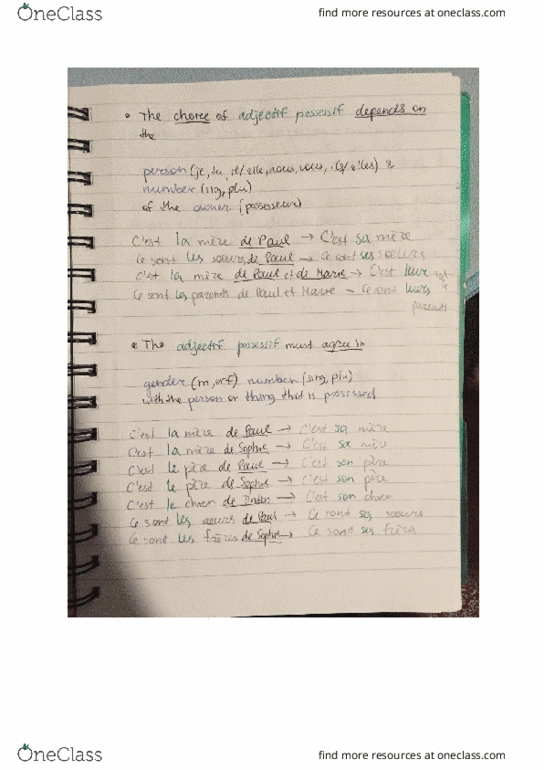 OneClass
find more resources at oneclass.com
• The choice of adjectif possessif depends on
the
person (je, tu, il/elle, nous, vous, ils/elles) &
number (sing, plu)
of the owner (possesseur)
C'est la mère de Paul → C'est sa mère
Ce sont les sœurs de Paul → Ce sont ses sœurs
C'est la mère de Paul et de Marve → C'est leur
Ce sont les parents de Paul et Marve → Ce sont leurs
parents
• The adjectif possessif must agree in
gender (m, or f) number (sing, plu)
with the person or thing that is possessed
C'est la mère de Paul → C'est sa mère
C'est la mère de Sophie → C'est sa mère
C'est le père de Paul → C'est son père
C'est le père de Sophie → C'est son père
C'est le chien de Tintin → C'est son chien
Ce sont les sœurs de Paul → Ce sont ses sœurs
Ce sont les frères de Sophie → Ce sont ses frères
OneClass
find more resources at oneclass.com